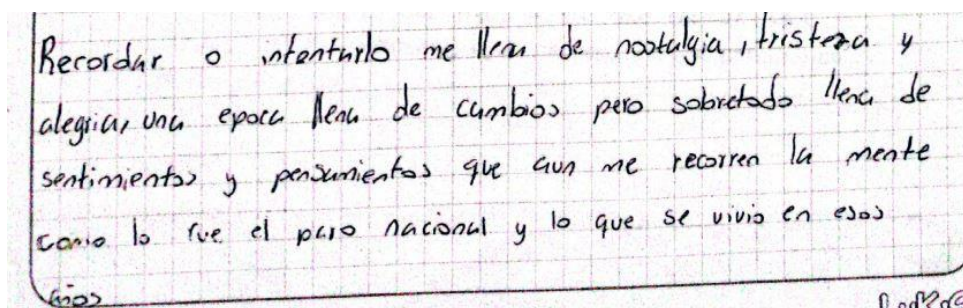 Recordar o intentarlo me llena de nostalgia, tristeza y
alegria, una epoca llena de cambios pero sobretodo llena de
sentimientos y pensamientos que aun me recorren la mente
como lo fue el paro nacional y lo que se vivio en esos
años